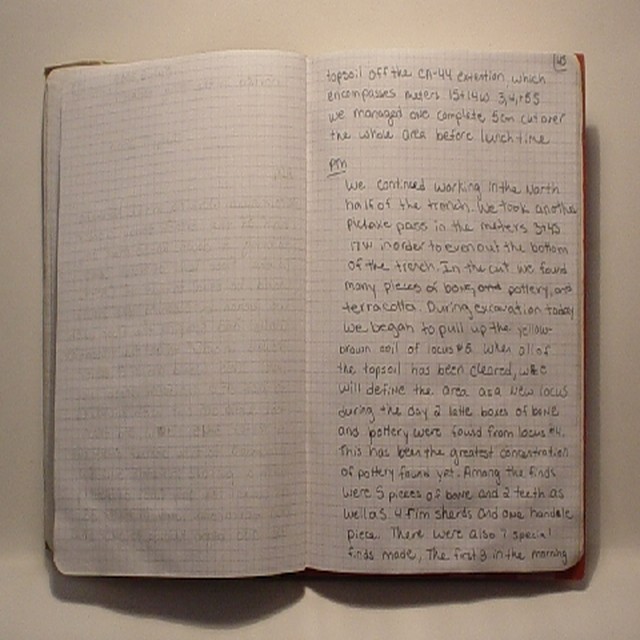 45
topsoil off the CA-44 extention, which
encompasses meters 15+14W 3,4,+5S
we managed one complete 5cm cut over
the whole area before lunchtime
PM
We continued working in the North
half of the trench. We took another
pickaxe pass in the meters 3+4S
17W in order to even out the bottom
of the trench. In the cut we found
many pieces of bone, and pottery, and
terracotta. During excavation today
we began to pull up the yellow-
brown soil of locus #5. When all of
the topsoil has been cleared, we
will define the area as a new locus
during the day 2 latte boxes of bone
and pottery were found from locus #4.
This has been the greatest concentration
of pottery found yet. Among the finds
were 5 pieces of bone and 2 teeth as
well as 4 rim sherds and one handle
piece. There were also 7 special
finds made, The first 3 in the morning